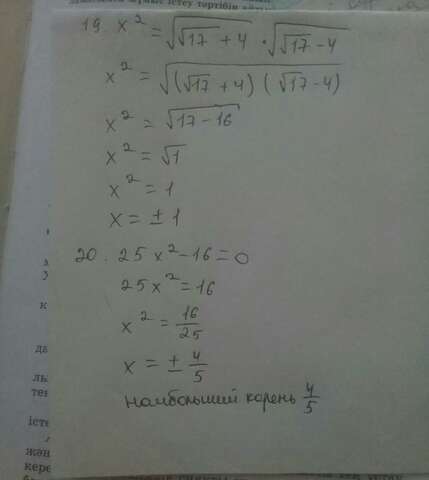 істеу тәртібін
19 x² = √(√17 + 4) · √(√17 - 4)
x² = √((√17 + 4) (√17 - 4))
x² = √(17 - 16)
x² = √1
x² = 1
x = ± 1
20. 25 x² - 16 = 0
25 x² = 16
x² = 16/25
x = ± 4/5
наибольший корень 4/5